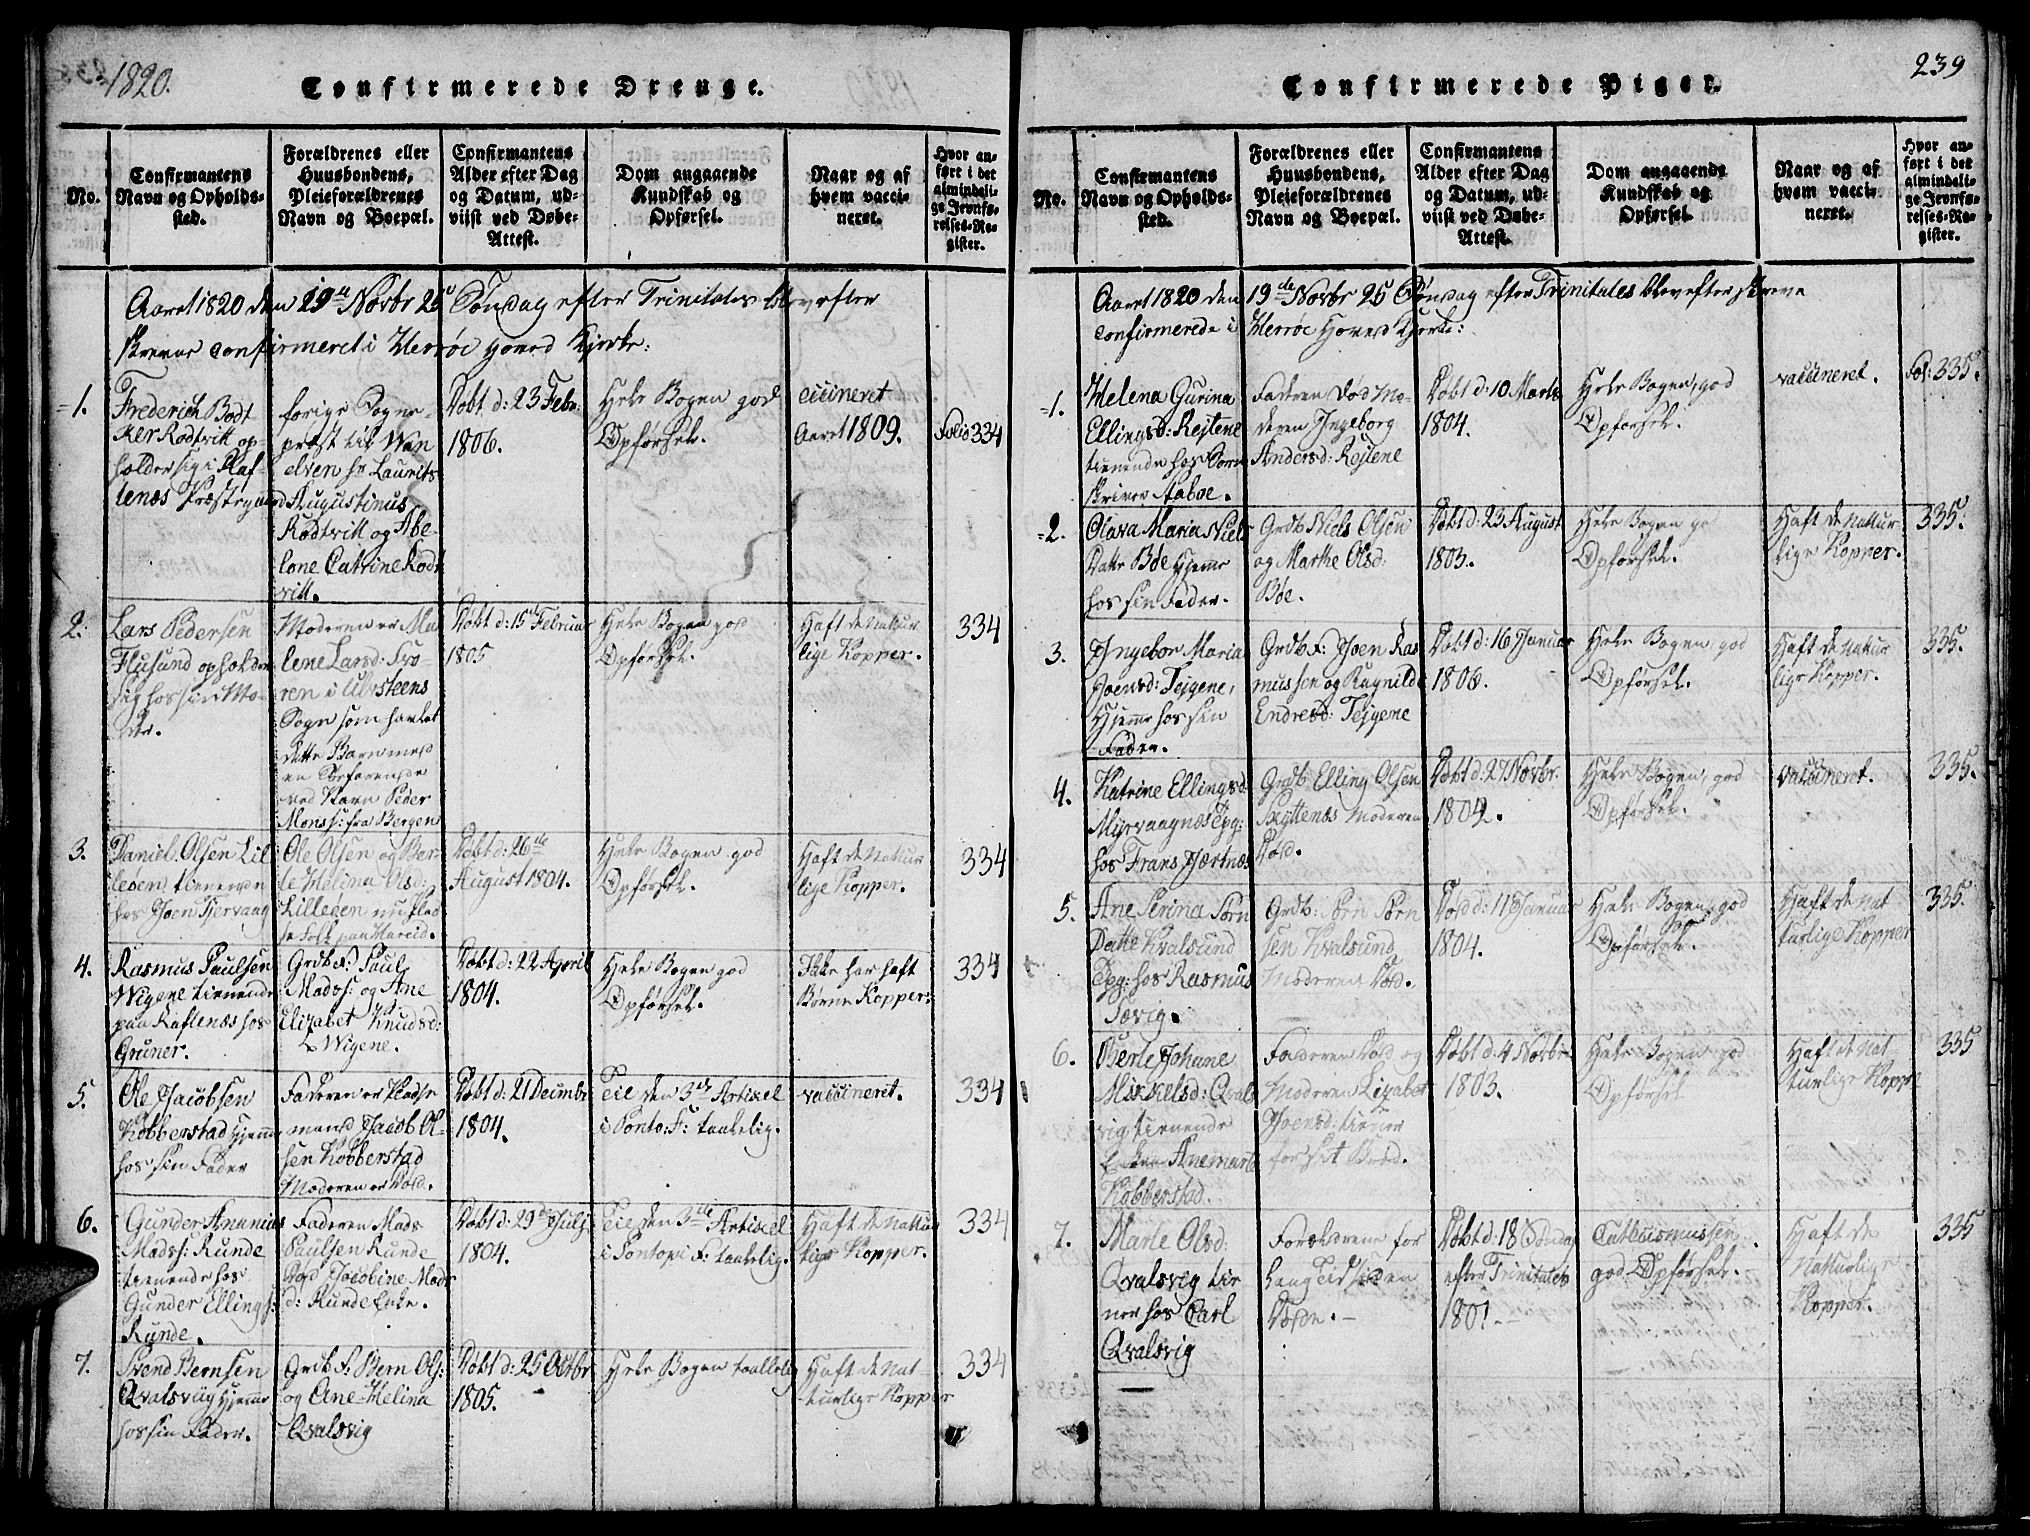 1820.
Confirmerede Drenge.
No.
Confirmantens
Navn og Opholds-
sted.
Forældrenes eller
Huusbondens,
Pleieforældrenes
Navn og Boepæl.
Confirmantens
Alder efter Dag
og Datum, ud-
viist ved Døbe-
Attest.
Dom angaaende
Kundskab og
Opførsel.
Naar og af
hvem vacci-
neret.
Hvor an-
ført i det
almindeli-
ge Jevnfø-
relses-Re-
gister.
Aaret 1820 den 19de Novbr 25de Søndag efter Trinitates blev efter
skrevne confirmeret i Herrøe Hoved Kjerke:
1.
Frederich Bodt
Ker Rodtvitt op-
holder sig i Haf-
lenæs Præstegaard
forige Sogne-
præst til Wan
elven hr Laurits
Augustinus
Rodtvitt og Abe-
lone Catrine Rodt
vitt.
Døbt d: 23 Febr:
1806.
Hele Bogen god
Opførsel.
ciccineret
Aaret 1809.
Folio 334
2.
Lars Pedersen
Flusund opholder
sig hos sin Mo-
der.
Moderen er Ma
lene Larsd:
ren i Ulvsteens
Sogn som havet
dette Barn med
en
ved Navn Peder
Monss: fra Bergen
Døbt d: 15de Februar
1805
Hele Bogen god
Opførsel.
Haft de Nattur
lige Kopper.
334
3.
Daniel Olsen Lil
leøen, tienende
hos Joen Tjervaag
Ole Olsen og Ber-
te Helina Olsd:
Lilleøen nu Plad
se Folk paa Mareid.
Døbt d: 26de
August 1804.
Hele Bogen god
Opførsel.
Haft de Nattur
lige Kopper.
334
4.
Rasmus Paulsen
Wigene tienende
paa Haflenæs hos
Gruner.
Grdb. F: Paul
Madss: og Ane
Elizabet Knudsd:
Wigene.
Døbt d: 22 April
1804.
Hele Bogen god
Opførsel.
Ikke har haft
Børne Kopper.
334
5.
Ole Jacobsen
Kobberstad hjemme
hos sin Fader
Faderen er Pladse
mand Jacob Ol-
sen Kobberstad
Moderen er Død.
Døbt d: 21 Decembr
1804.
Til den 3de Artikel
i Ponto: F: taalelig.
vaccineret.
334
6.
Gunder Ananias
Madss: Runde
tienende hos
Gunder Ellings:
Runde.
Faderen Mads
Paulsen Runde
Død Jacobine Mads
d: Runde Enke.
Døbt d: 29de Julj
1804.
Til den 3de Artikel
i Pontopi F: taalelig.
Haft de Nattur
lige Kopper.
334
7.
Svend Bernsen
Qvalsviig hjemme
hos sin Fader.
Grdb F: Bern Ols:
og Ane Helina
Qvalsvig
Døbt d: 25 Octbr
1805.
Hele Bogen taallelig
Haft de Nat
turlige Kopper
334
239
Confirmerede Piger.
No.
Confirmantens
Navn og Opholds-
sted.
Forældrenes eller
Huusbondens,
Pleieforældrenes
Navn og Boepæl.
Confirmantens
Alder efter Dag
og Datum, ud-
viist ved Døbe-
Attest.
Dom angaaende
Kundskab og
Opførsel.
Naar og af
hvem vacci-
neret.
Hvor an-
ført i det
almindeli-
ge Jevnfø-
relses-Re-
gister.
Aaret 1820 den 19de Novbr 25 Søndag efter Trinitates blev efter skrevne
confirmerede i Herrøe Hoved Kjerke:
1.
Helena Gurina
Ellingsd: Rejtene
tienende hos Sorn
skriver Aaboe.
Faderen Død Mo-
deren Ingeborg
Andersd: Rejtene
Døbt d: 10 Marts
1804.
Hele Bogen, god
Opførsel.
vaccineret.
Fol: 335.
2.
Olava Maria Niels
Datter Bøe hjemme
hos sin Fader.
Grdb. Niels Olsen
og Marthe Olsd:
Bøe.
Døbt d: 23 August
1803.
Hele Bogen god
Opførsel.
Haft de Nattur
lige Kopper.
335.
3.
Ingebor Maria
Joensd: Tejgene,
Hjemme hos sin
Fader.
Grdb F: Joen Ras
mussen og Ragnilde
Endresd: Tejgene
Døbt d: 16 Januar
1806.
Hele Bogen, god
Opførsel.
Haft de Natur
lige Kopper.
335.
4.
Katrine Ellingsd
Myrvaagnes
hos Frans Hjertnæs
Grdb. Elling Olsen
Skyttenæs Moderen
Død.
Døbt d: 27 Novbr.
1804.
Hele Bogen, god
Opførsel.
vaccineret.
335.
5.
Ane Serina Sørn
Datte Kvalsund
hos Rasmus
Sævig.
Grdb: Sørn Sørn
sen Kvalsund
Moderen Død.
Død d: 11 Januar
1804.
Hele Bogen, god
Opførsel.
Haft de Nat
turlige Kopper
335.
6.
Berle Johane
Mikkelsd: Qvals
vig tienende
Enken Anemarte
Kobberstad.
Faderen Død og
Moderen Lizabet
Joensd: tiener
for sit Brød.
Døbt d: 4 Novbr
1803.
Hele Bogen god
Opførsel
Haft de Nat
turlige Koppe
335
7.
Marte Olsd:
Qvalsvig tie
ner hos Carl
Qvalsvig
Forældrene for
lang Tid siden
Døde.-
Døbt d: 18 Søndag
efter Trinitates
1801.-
Cathecismussen
god Opførsel.-
Haft de
Naturlige
Kopper.
335